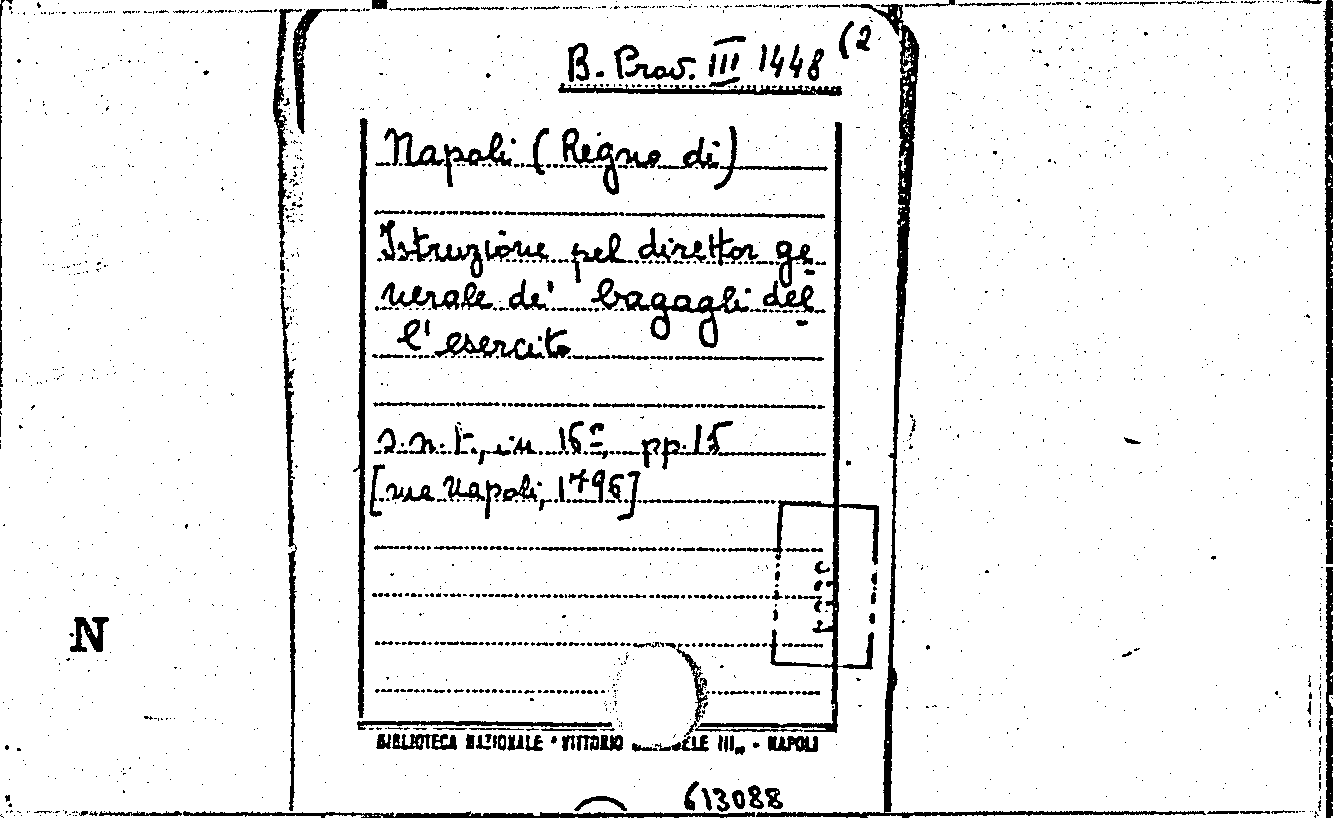 B. Prov. III 1448 (2
Napoli (Regno di)
Istruzione pel direttor ge
nerale de' bagagli del
l'esercito
s.n.t., in 16º, pp. 15
[ma Napoli, 1796]
N
BIBLIOTECA NAZIONALE "VITTORIO III„ - NAPOLI
613088